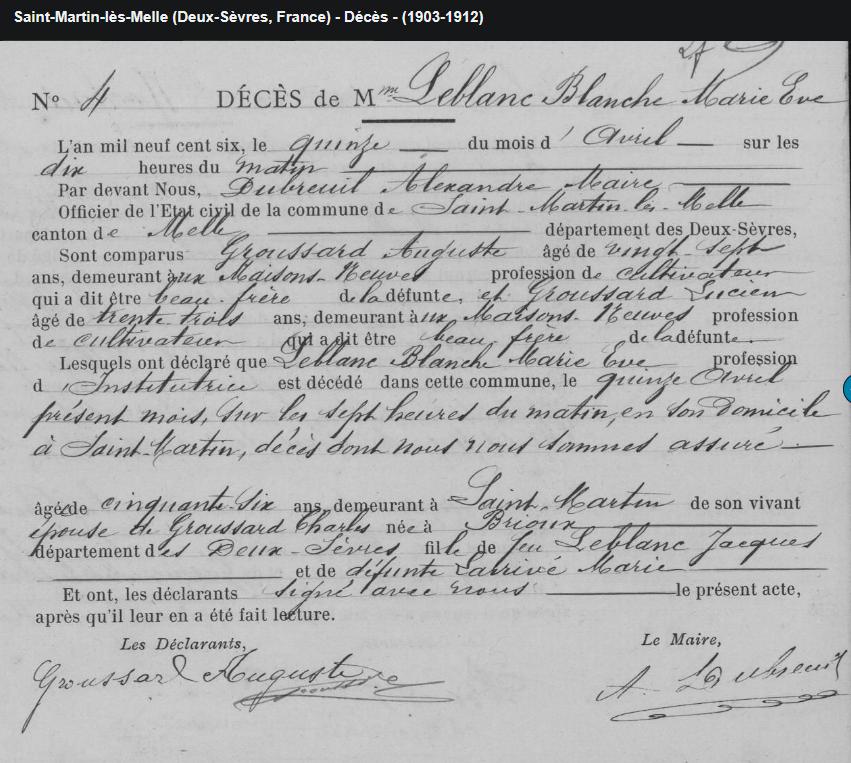 Saint-Martin-lès-Melle (Deux-Sèvres, France) - Décès - (1903-1912)
N° 4 DÉCÈS de Mme Leblanc Blanche Marie Eve
L'an mil neuf cent six, le quinze du mois d' Avril sur les
dix heures du matin
Par devant Nous, Dubreuil Alexandre Maire
Officier de l'Etat civil de la commune de Saint-Martin-lès-Melle
canton de Melle département des Deux-Sèvres,
Sont comparus Groussard Auguste âgé de vingt-sept
ans, demeurant aux Maisons-Neuves profession de cultivateur
qui a dit être beau-frère de la défunte, et Groussard Lucien
âgé de trente trois ans, demeurant aux Maisons-Neuves profession
de cultivateur qui a dit être beau frère de la défunte
Lesquels ont déclaré que Leblanc Blanche Marie Eve profession
d'Institutrice est décédé dans cette commune, le quinze Avril
présent mois, sur les sept heures du matin, en son domicile
à Saint-Martin, décès dont nous nous sommes assuré
âgée de cinquante-six ans, demeurant à Saint-Martin de son vivant
épouse de Groussard Charles née à Brioux
département des Deux-Sèvres, fille de feu Leblanc Jacques
et de défunte Larrivé Marie
Et ont, les déclarants signé avec nous le présent acte,
après qu'il leur en a été fait lecture.
Les Déclarants, Le Maire,
Groussard Auguste A. Dubreuil